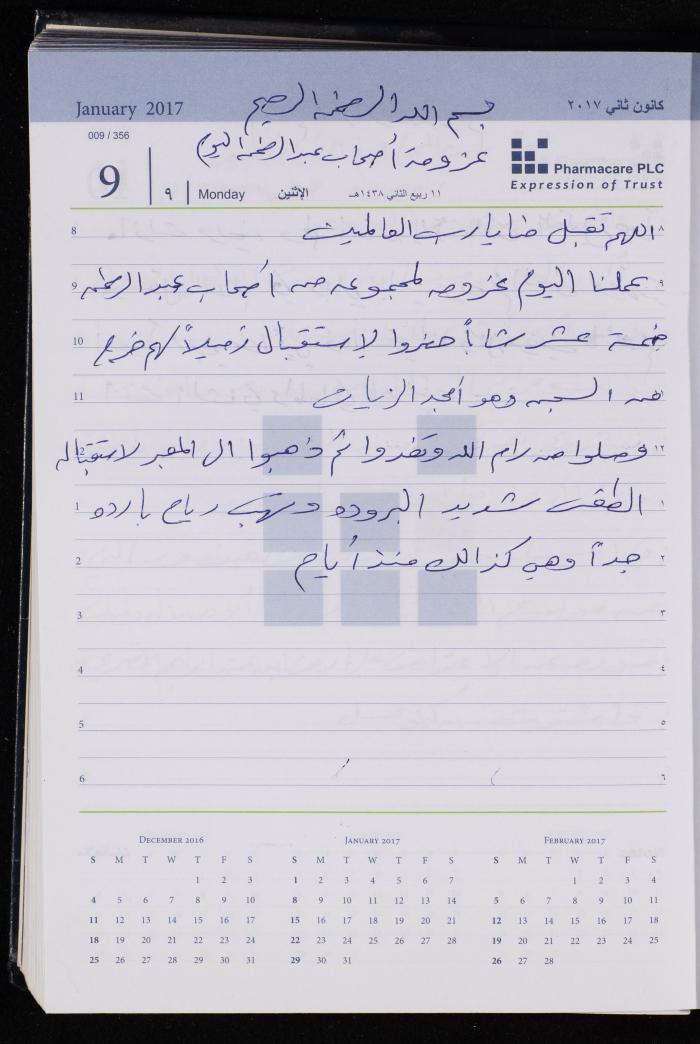 بسم الله الرحمن الرحيم
January 2017
كانون ثاني ٢٠١٧
009 / 356
عزومة أصحاب عبد الرحمن اليوم
9
٩
Monday
الإثنين
١١ ربيع الثاني ١٤٣٨هـ
Pharmacare PLC
Expression of Trust
8 اللهم تقبل منا يا رب العالمين ٨
9 عملنا اليوم عزومه لمجموعه من أصحاب عبد الرحمن ٩
10 خمسة عشر شاباً حضروا لإستقبال زميلاً لهم خرج
11 من السجن وهو أمجد الزيات
12 وصلوا من رام الله وتغدوا ثم ذهبوا ال المعبر لاستقباله ١٢
1 الطقس شديد البروده وتهب رياح بارده ١
2 جداً وهي كذالك منذ أيام ٢
3 ٣
4 ٤
5 ٥
6 ٦
DECEMBER 2016
S M T W T F S
1 2 3
4 5 6 7 8 9 10
11 12 13 14 15 16 17
18 19 20 21 22 23 24
25 26 27 28 29 30 31
JANUARY 2017
S M T W T F S
1 2 3 4 5 6 7
8 9 10 11 12 13 14
15 16 17 18 19 20 21
22 23 24 25 26 27 28
29 30 31
FEBRUARY 2017
S M T W T F S
1 2 3 4
5 6 7 8 9 10 11
12 13 14 15 16 17 18
19 20 21 22 23 24 25
26 27 28